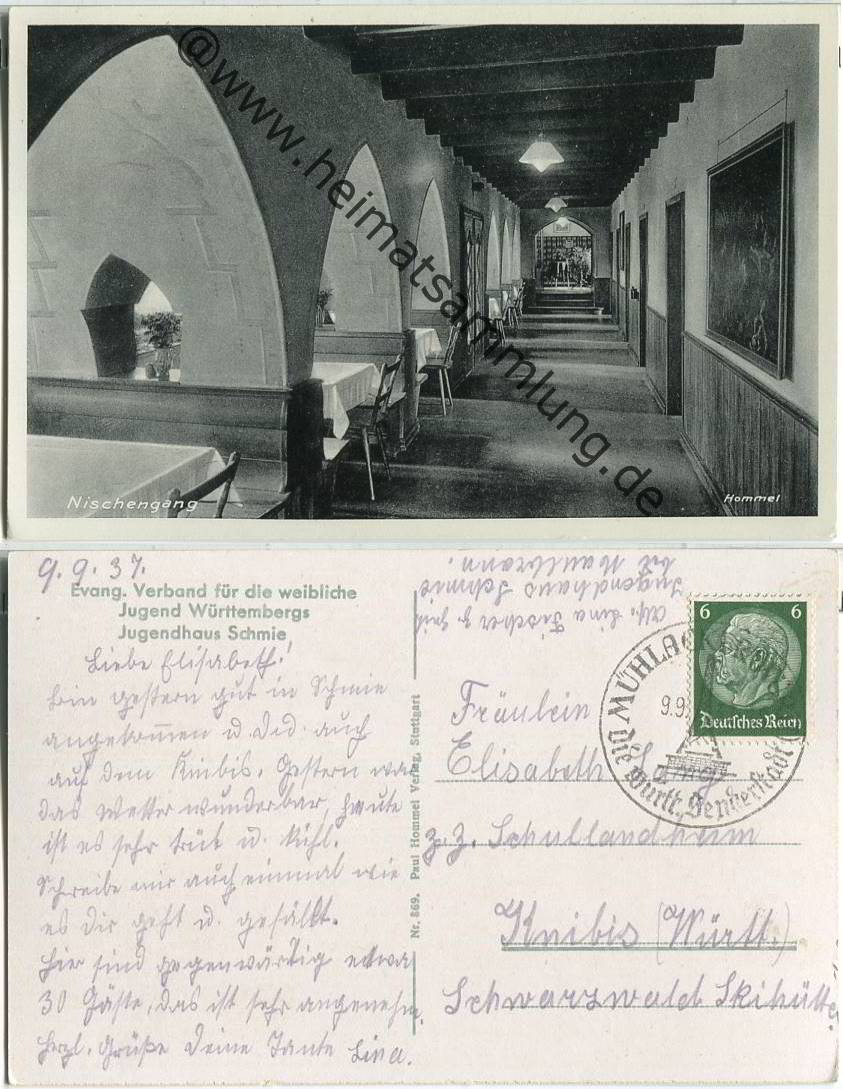 @www.heimatsammlung.de
Nischengang
Hommel
9.9.37.
Evang. Verband für die weibliche
Jugend Württembergs
Jugendhaus Schmie
Liebe Elisabeth!
Bin gestern gut in Schmie
angekommen u. Did. auch
auf dem Knibis. Gestern war
das Wetter wunderbar, heute
ist es sehr trüb u. kühl.
Schreibe mir auch einmal wie
es dir geht u. gefällt.
Hier sind gegenwärtig etwa
30 Gäste, das ist sehr angenehm.
Herzl. Grüße Deine Tante Lina.
Nr. 869. Paul Hommel Verlag, Stuttgart
Abs. Lina Fischer z. Zeit
Jugendhaus Schmie
bei Maulbronn.
6 6
Deutsches Reich
MÜHLA
9.9.
Die württ. Senderstadt
Fräulein
Elisabeth
z. Z. Schullandheim
Knibis (Württ.)
Schwarzwald Skihütte